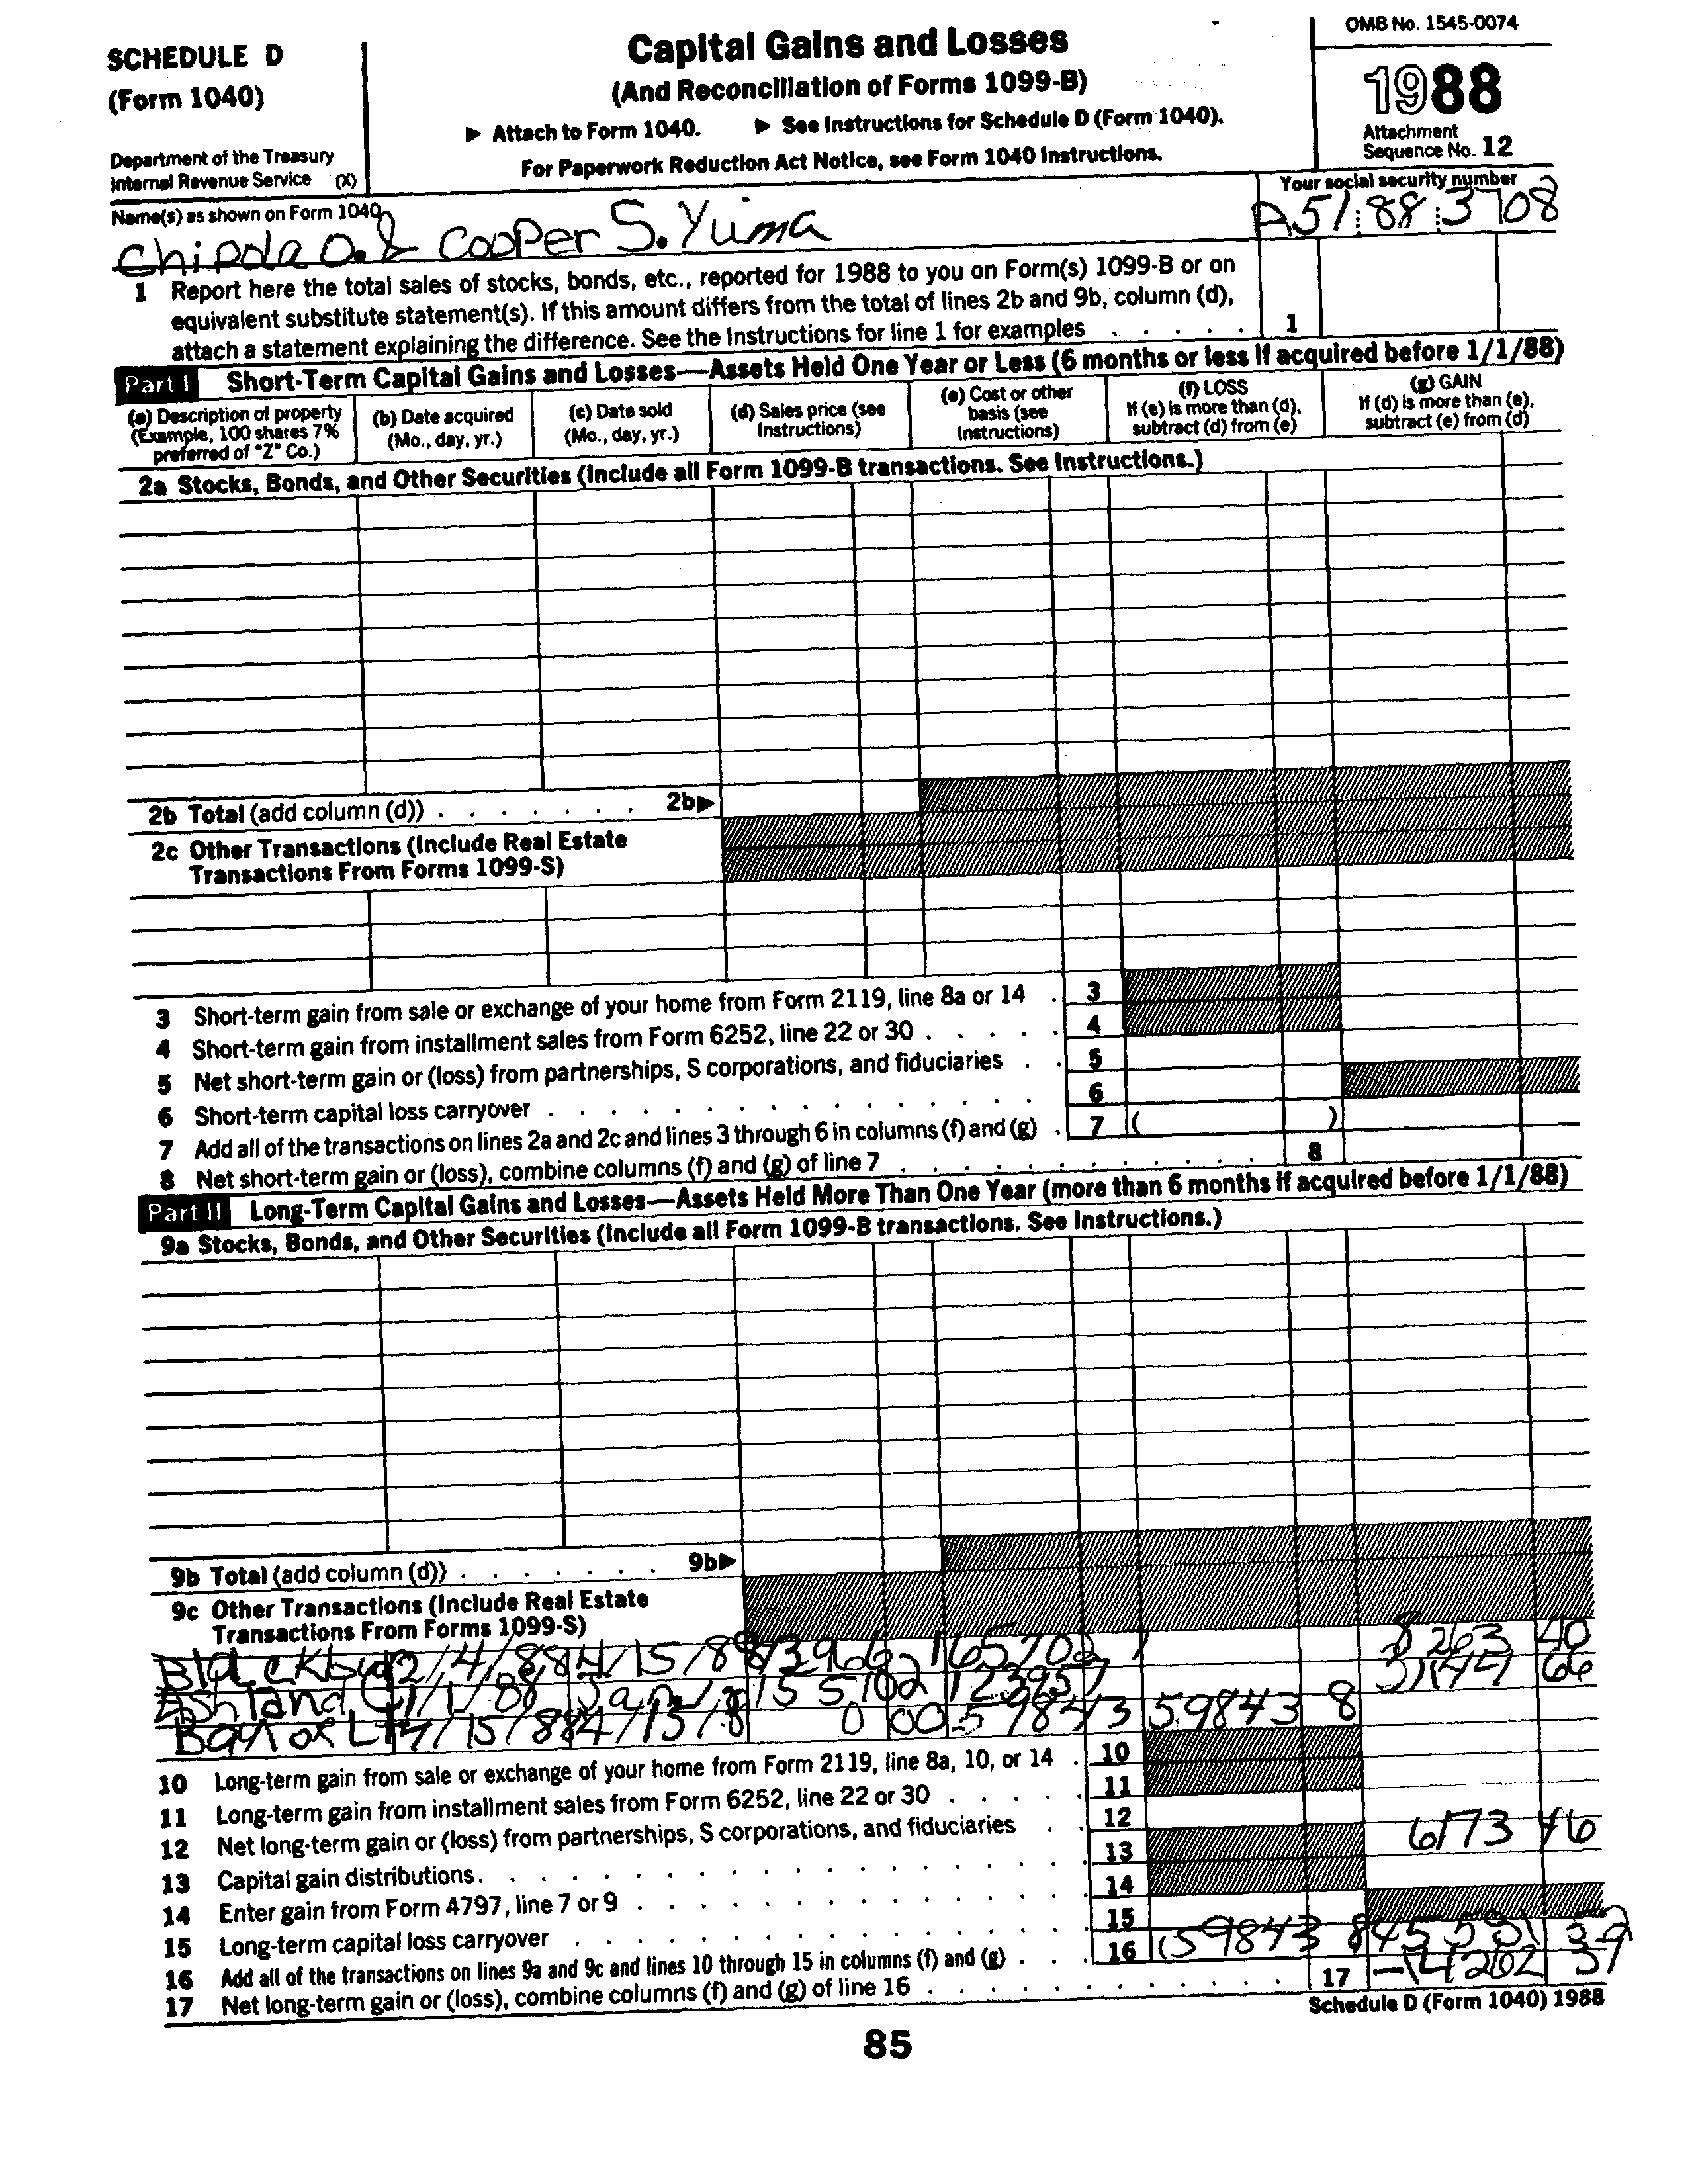 SCHEDULE D
(Form 1040)
Department of the Treasury
Internal Revenue Service (X)
Capital Gains and Losses
(And Reconciliation of Forms 1099-B)
▶ Attach to Form 1040. ▶ See Instructions for Schedule D (Form 1040).
For Paperwork Reduction Act Notice, see Form 1040 Instructions.
OMB No. 1545-0074
1988
Attachment
Sequence No. 12
Name(s) as shown on Form 1040
Your social security number
O. & Cooper S. Yuma
A51 88 3708
1 Report here the total sales of stocks, bonds, etc., reported for 1988 to you on Form(s) 1099-B or on
equivalent substitute statement(s). If this amount differs from the total of lines 2b and 9b, column (d),
attach a statement explaining the difference. See the Instructions for line 1 for examples . . . . . 1
Part I Short-Term Capital Gains and Losses—Assets Held One Year or Less (6 months or less if acquired before 1/1/88)
(a) Description of property
(Example, 100 shares 7%
preferred of "Z" Co.)
(b) Date acquired
(Mo., day, yr.)
(c) Date sold
(Mo., day, yr.)
(d) Sales price (see
Instructions)
(e) Cost or other
basis (see
Instructions)
(f) LOSS
If (e) is more than (d),
subtract (d) from (e)
(g) GAIN
If (d) is more than (e),
subtract (e) from (d)
2a Stocks, Bonds, and Other Securities (Include all Form 1099-B transactions. See Instructions.)
2b Total (add column (d)) . . . . . . . 2b▶
2c Other Transactions (Include Real Estate
Transactions From Forms 1099-S)
3 Short-term gain from sale or exchange of your home from Form 2119, line 8a or 14 . 3
4 Short-term gain from installment sales from Form 6252, line 22 or 30 . . . . . 4
5 Net short-term gain or (loss) from partnerships, S corporations, and fiduciaries . . 5
6 Short-term capital loss carryover . . . . . . . . . . . . . . . . 6
7 Add all of the transactions on lines 2a and 2c and lines 3 through 6 in columns (f) and (g) . 7 ( )
8 Net short-term gain or (loss), combine columns (f) and (g) of line 7 . . . . . . . . . . . . . 8
Part II Long-Term Capital Gains and Losses—Assets Held More Than One Year (more than 6 months if acquired before 1/1/88)
9a Stocks, Bonds, and Other Securities (Include all Form 1099-B transactions. See Instructions.)
9b Total (add column (d)) . . . . . . . 9b▶
9c Other Transactions (Include Real Estate
Transactions From Forms 1099-S)
4/15/88 40
Ashland 1/1/88 66
Bay or L 4/15/88 4/15/8 0 00 59843 59843 8
10 Long-term gain from sale or exchange of your home from Form 2119, line 8a, 10, or 14 . 10
11 Long-term gain from installment sales from Form 6252, line 22 or 30 . . . . . 11
12 Net long-term gain or (loss) from partnerships, S corporations, and fiduciaries . . 12
6173 46
13 Capital gain distributions . . . . . . . . . . . . . . . . . . . 13
14 Enter gain from Form 4797, line 7 or 9 . . . . . . . . . . . . . . 14
15 Long-term capital loss carryover . . . . . . . . . . . . . . . . 15
16 Add all of the transactions on lines 9a and 9c and lines 10 through 15 in columns (f) and (g) . . . 16 (59843 8 45581 32
17 Net long-term gain or (loss), combine columns (f) and (g) of line 16 . . . . . . . . . . . . 17 -14262 37
Schedule D (Form 1040) 1988
85